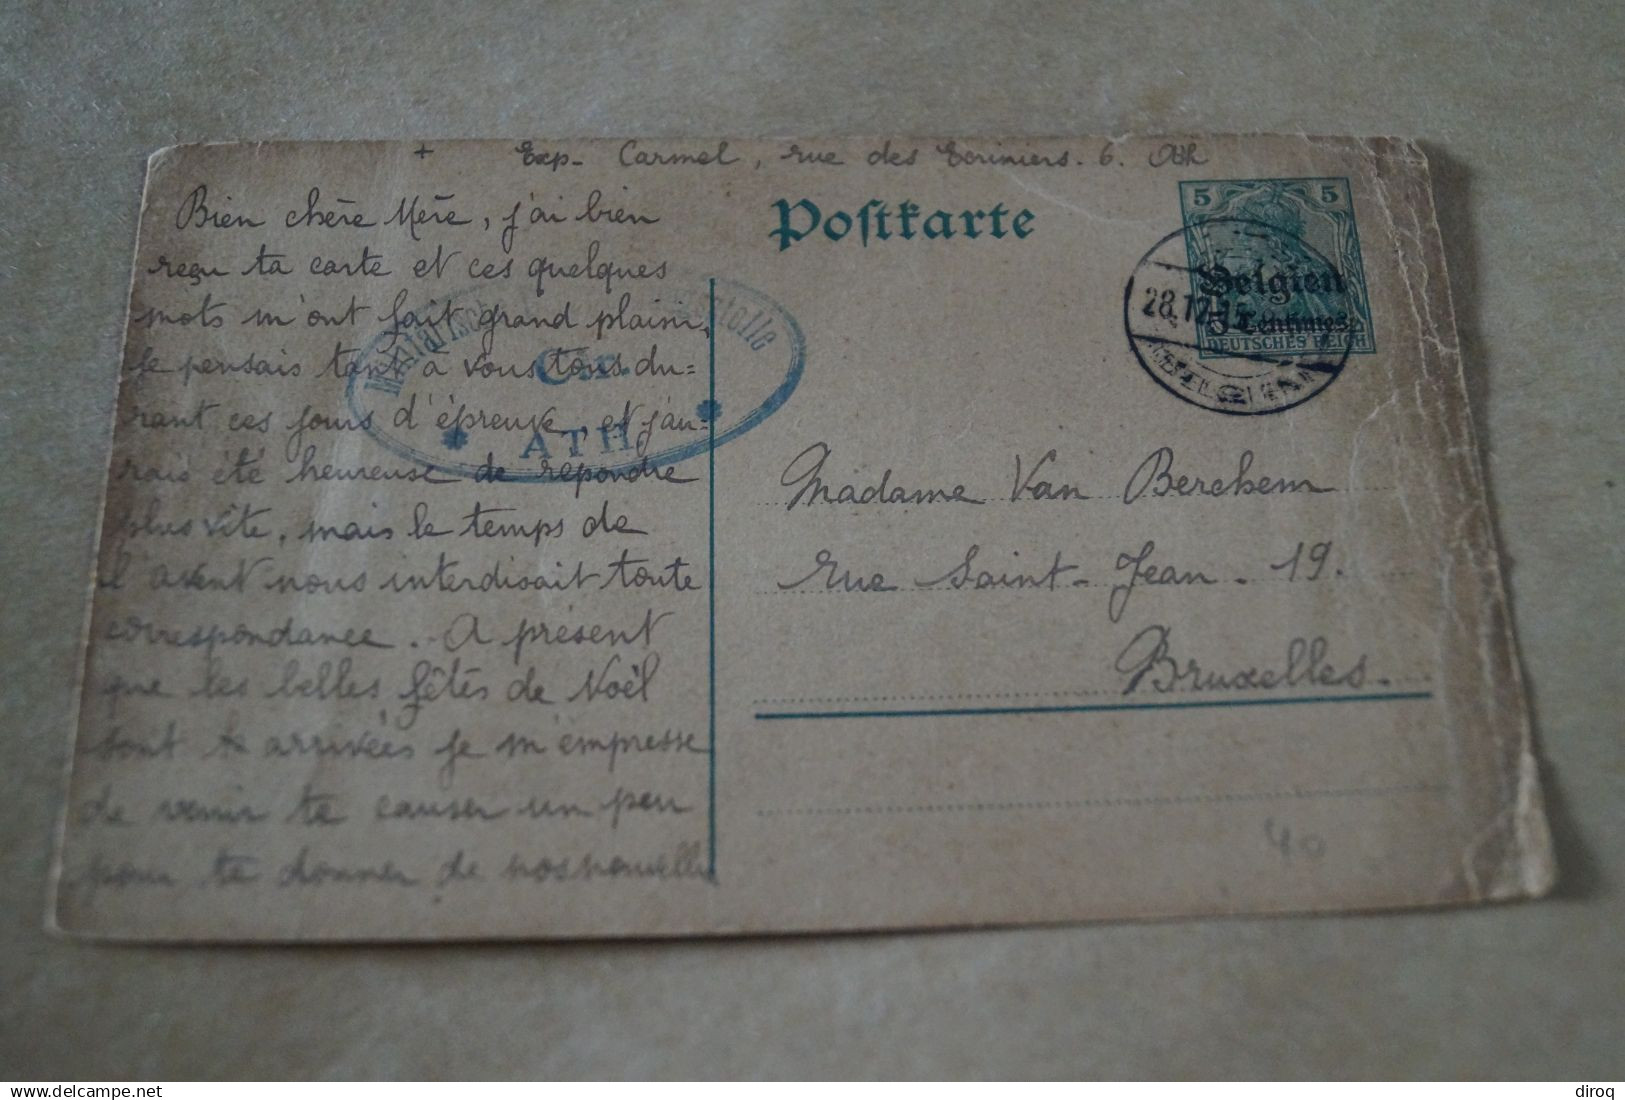 + Exp. Carmel, rue des Ecriniers. 6. Ath
Bien chère Mère, j'ai bien
reçu ta carte et ces quelques
mots m'ont fait grand plaisir,
je pensais tant à vous tous du=
rant ces jours d'épreuve, et j'au=
rais été heureuse de répondre
plus vite, mais le temps de
l'avent nous interdisait toute
correspondance. A présent
que les belles fêtes de Noël
sont arrivées je m'empresse
de venir te causer un peu
pour te donner de nos nouvelles
Postkarte
5 5
Belgien
5 Centimes
DEUTSCHES REICH
28.12.15
Militärische
Ctr.
* ATH *
Madame Van Berchem
rue Saint-Jean. 19.
Bruxelles.
40
delcampe.net
diroq